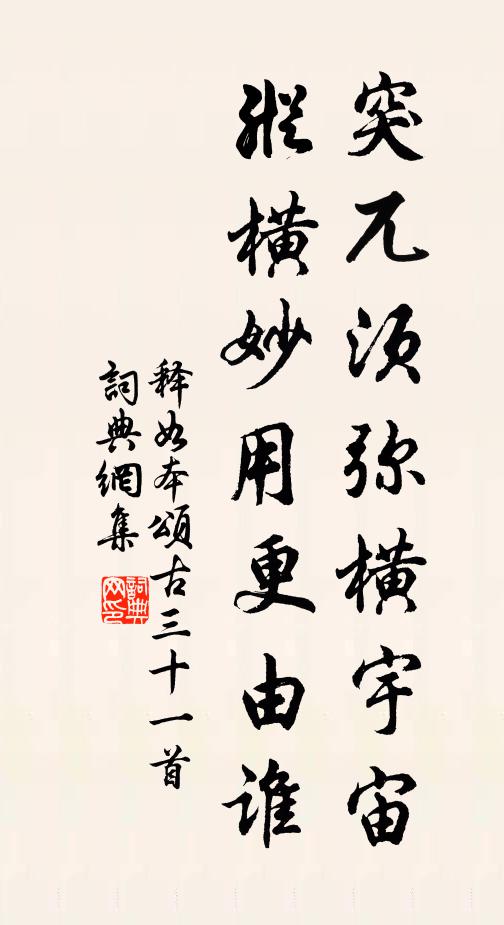 突兀须弥横宇宙
縱橫妙用更由誰
释如本頌古三十一首
詞典網集
詞典網印